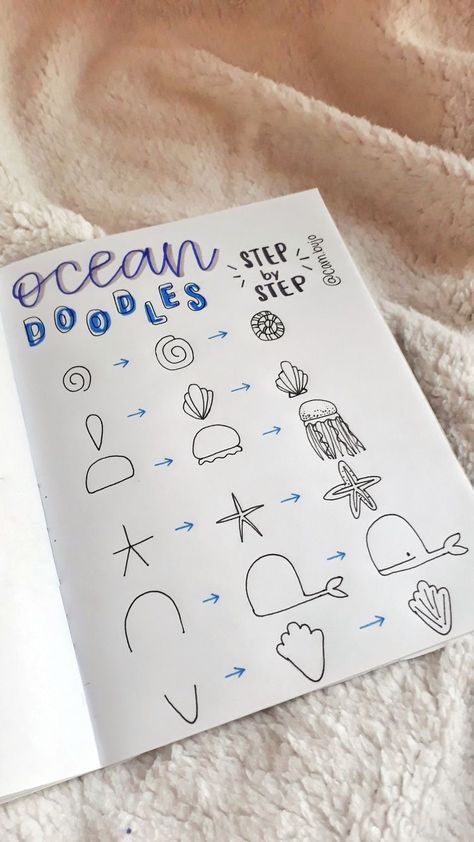 ocean
DOODLES
STEP
by
STEP
@cam.bujo